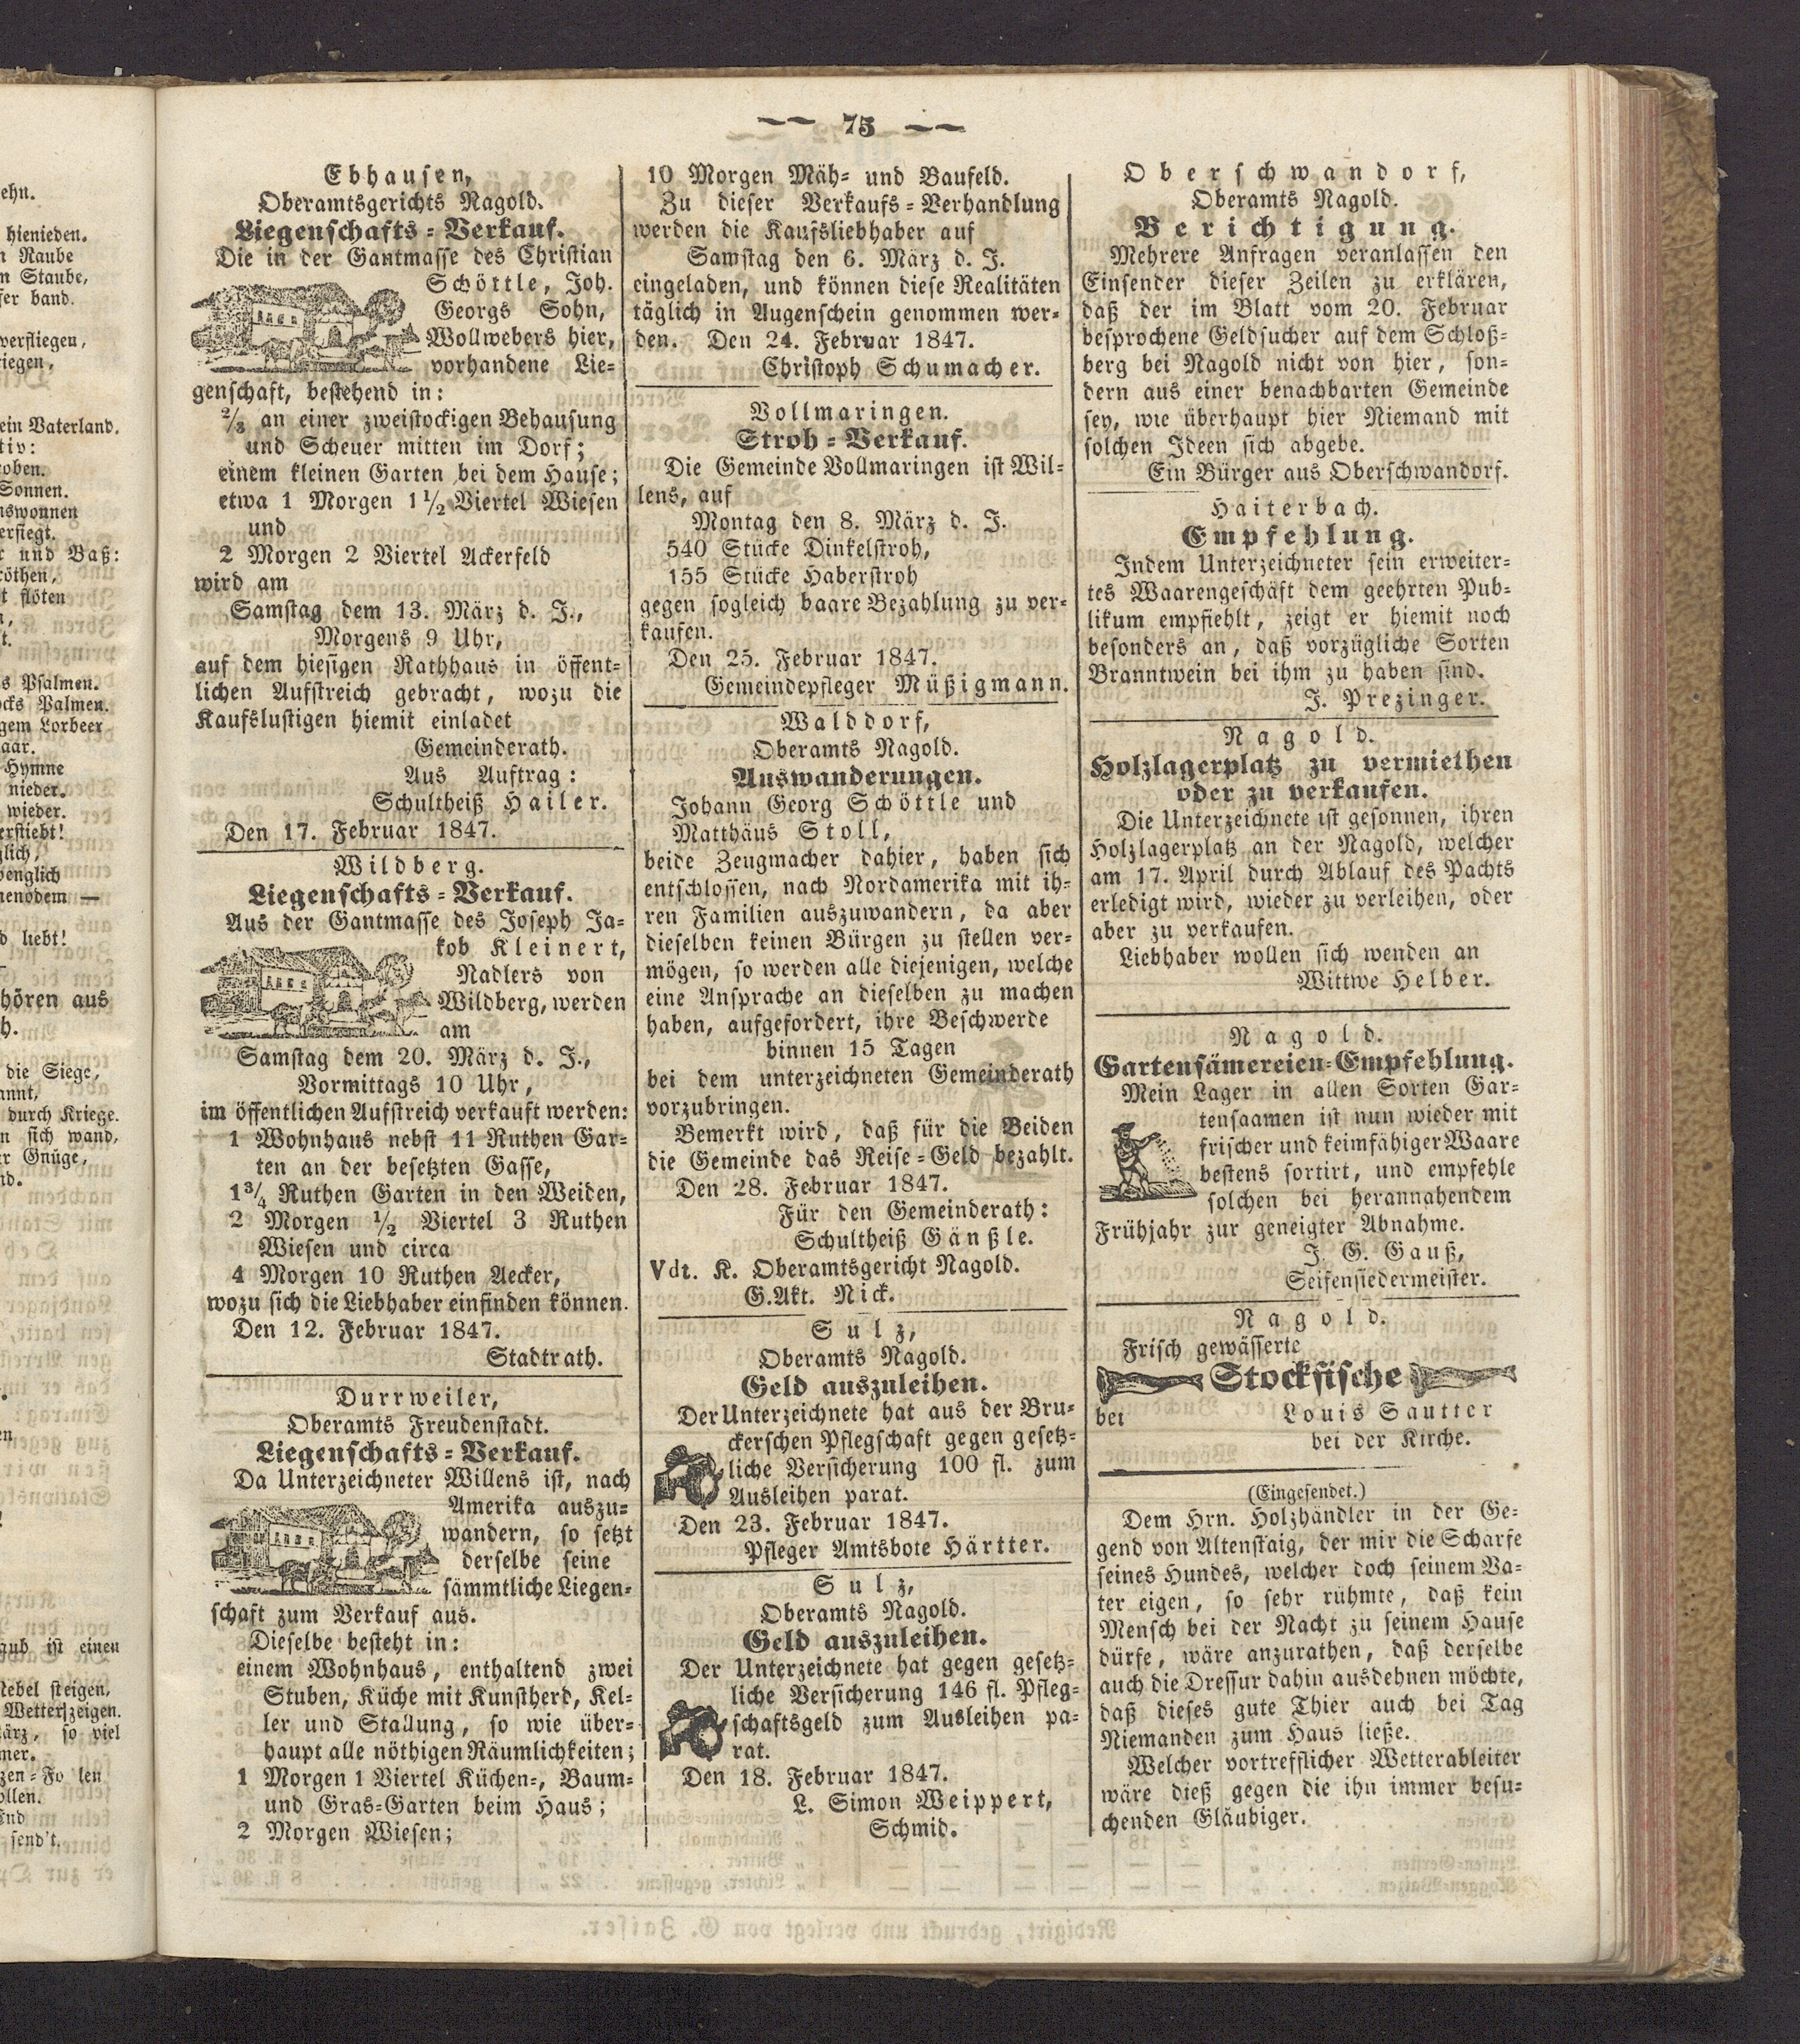 — 75 —
Ebhausen,
Oberamtsgerichts Nagold.
Liegenschafts-Verkauf.
Die in der Gantmasse des Christian
Schöttle, Joh.
Georgs Sohn,
Wollwebers hier,
vorhandene Lie-
genschaft, bestehend in:
2/3 an einer zweistockigen Behausung
und Scheuer mitten im Dorf;
einem kleinen Garten bei dem Hause;
etwa 1 Morgen 1 1/2 Viertel Wiesen
und
2 Morgen 2 Viertel Ackerfeld
wird am
Samstag dem 13. März d. J.,
Morgens 9 Uhr,
auf dem hiesigen Rathhaus in öffent-
lichen Aufstreich gebracht, wozu die
Kaufslustigen hiemit einladet
Gemeinderath.
Aus Auftrag:
Schultheiß Hailer.
Den 17. Februar 1847.
Wildberg.
Liegenschafts-Verkauf.
Aus der Gantmasse des Joseph Ja-
kob Kleinert,
Nadlers von
Wildberg, werden
am
Samstag dem 20. März d. J.,
Vormittags 10 Uhr,
im öffentlichen Aufstreich verkauft werden:
1 Wohnhaus nebst 11 Ruthen Gar-
ten an der besetzten Gasse,
1 3/4 Ruthen Garten in den Weiden,
2 Morgen 1/2 Viertel 3 Ruthen
Wiesen und circa
4 Morgen 10 Ruthen Aecker,
wozu sich die Liebhaber einfinden können.
Den 12. Februar 1847.
Stadtrath.
Durrweiler,
Oberamts Freudenstadt.
Liegenschafts-Verkauf.
Da Unterzeichneter Willens ist, nach
Amerika auszu-
wandern, so setzt
derselbe seine
sämmtliche Liegen-
schaft zum Verkauf aus.
Dieselbe besteht in:
einem Wohnhaus, enthaltend zwei
Stuben, Küche mit Kunstherd, Kel-
ler und Stallung, so wie über-
haupt alle nöthigen Räumlichkeiten;
1 Morgen 1 Viertel Küchen-, Baum-
und Gras-Garten beim Haus;
2 Morgen Wiesen;
10 Morgen Mäh- und Baufeld.
Zu dieser Verkaufs-Verhandlung
werden die Kaufsliebhaber auf
Samstag den 6. März d. J.
eingeladen, und können diese Realitäten
täglich in Augenschein genommen wer-
den. Den 24. Februar 1847.
Christoph Schumacher.
Vollmaringen.
Stroh-Verkauf.
Die Gemeinde Vollmaringen ist Wil-
lens, auf
Montag den 8. März d. J.
540 Stücke Dinkelstroh,
155 Stücke Haberstroh
gegen sogleich baare Bezahlung zu ver-
kaufen.
Den 25. Februar 1847.
Gemeindepfleger Müßigmann.
Walddorf,
Oberamts Nagold.
Auswanderungen.
Johann Georg Schöttle und
Matthäus Stoll,
beide Zeugmacher dahier, haben sich
entschlossen, nach Nordamerika mit ih-
ren Familien auszuwandern, da aber
dieselben keinen Bürgen zu stellen ver-
mögen, so werden alle diejenigen, welche
eine Ansprache an dieselben zu machen
haben, aufgefordert, ihre Beschwerde
binnen 15 Tagen
bei dem unterzeichneten Gemeinderath
vorzubringen.
Bemerkt wird, daß für die Beiden
die Gemeinde das Reise-Geld bezahlt.
Den 28. Februar 1847.
Für den Gemeinderath:
Schultheiß Gänßle.
Vdt. K. Oberamtsgericht Nagold.
G.Akt. Nick.
Sulz,
Oberamts Nagold.
Geld auszuleihen.
Der Unterzeichnete hat aus der Bru-
ckerschen Pflegschaft gegen gesetz-
liche Versicherung 100 fl. zum
Ausleihen parat.
Den 23. Februar 1847.
Pfleger Amtsbote Härtter.
Sulz,
Oberamts Nagold.
Geld auszuleihen.
Der Unterzeichnete hat gegen gesetz-
liche Versicherung 146 fl. Pfleg-
schaftsgeld zum Ausleihen pa-
rat.
Den 18. Februar 1847.
L. Simon Weippert,
Schmid.
Oberschwandorf,
Oberamts Nagold.
Berichtigung.
Mehrere Anfragen veranlassen den
Einsender dieser Zeilen zu erklären,
daß der im Blatt vom 20. Februar
besprochene Geldsucher auf dem Schloß-
berg bei Nagold nicht von hier, son-
dern aus einer benachbarten Gemeinde
sey, wie überhaupt hier Niemand mit
solchen Ideen sich abgebe.
Ein Bürger aus Oberschwandorf.
Haiterbach.
Empfehlung.
Indem Unterzeichneter sein erweiter-
tes Waarengeschäft dem geehrten Pub-
likum empfiehlt, zeigt er hiemit noch
besonders an, daß vorzügliche Sorten
Branntwein bei ihm zu haben sind.
J. Prezinger.
Nagold.
Holzlagerplatz zu vermiethen
oder zu verkaufen.
Die Unterzeichnete ist gesonnen, ihren
Holzlagerplatz an der Nagold, welcher
am 17. April durch Ablauf des Pachts
erledigt wird, wieder zu verleihen, oder
aber zu verkaufen.
Liebhaber wollen sich wenden an
Wittwe Helber.
Nagold.
Gartensämereien-Empfehlung.
Mein Lager in allen Sorten Gar-
tensaamen ist nun wieder mit
frischer und keimfähiger Waare
bestens sortirt, und empfehle
solchen bei herannahendem
Frühjahr zur geneigter Abnahme.
J. G. Gauß,
Seifensiedermeister.
Nagold.
Frisch gewässerte
Stockfische
bei Louis Sautter
bei der Kirche.
(Eingesendet.)
Dem Hrn. Holzhändler in der Ge-
gend von Altenstaig, der mir die Scharfe
seines Hundes, welcher doch seinem Va-
ter eigen, so sehr rühmte, daß kein
Mensch bei der Nacht zu seinem Hause
dürfe, wäre anzurathen, daß derselbe
auch die Dressur dahin ausdehnen möchte,
daß dieses gute Thier auch bei Tag
Niemanden zum Haus ließe.
Welcher vortrefflicher Wetterableiter
wäre dieß gegen die ihn immer besu-
chenden Gläubiger.